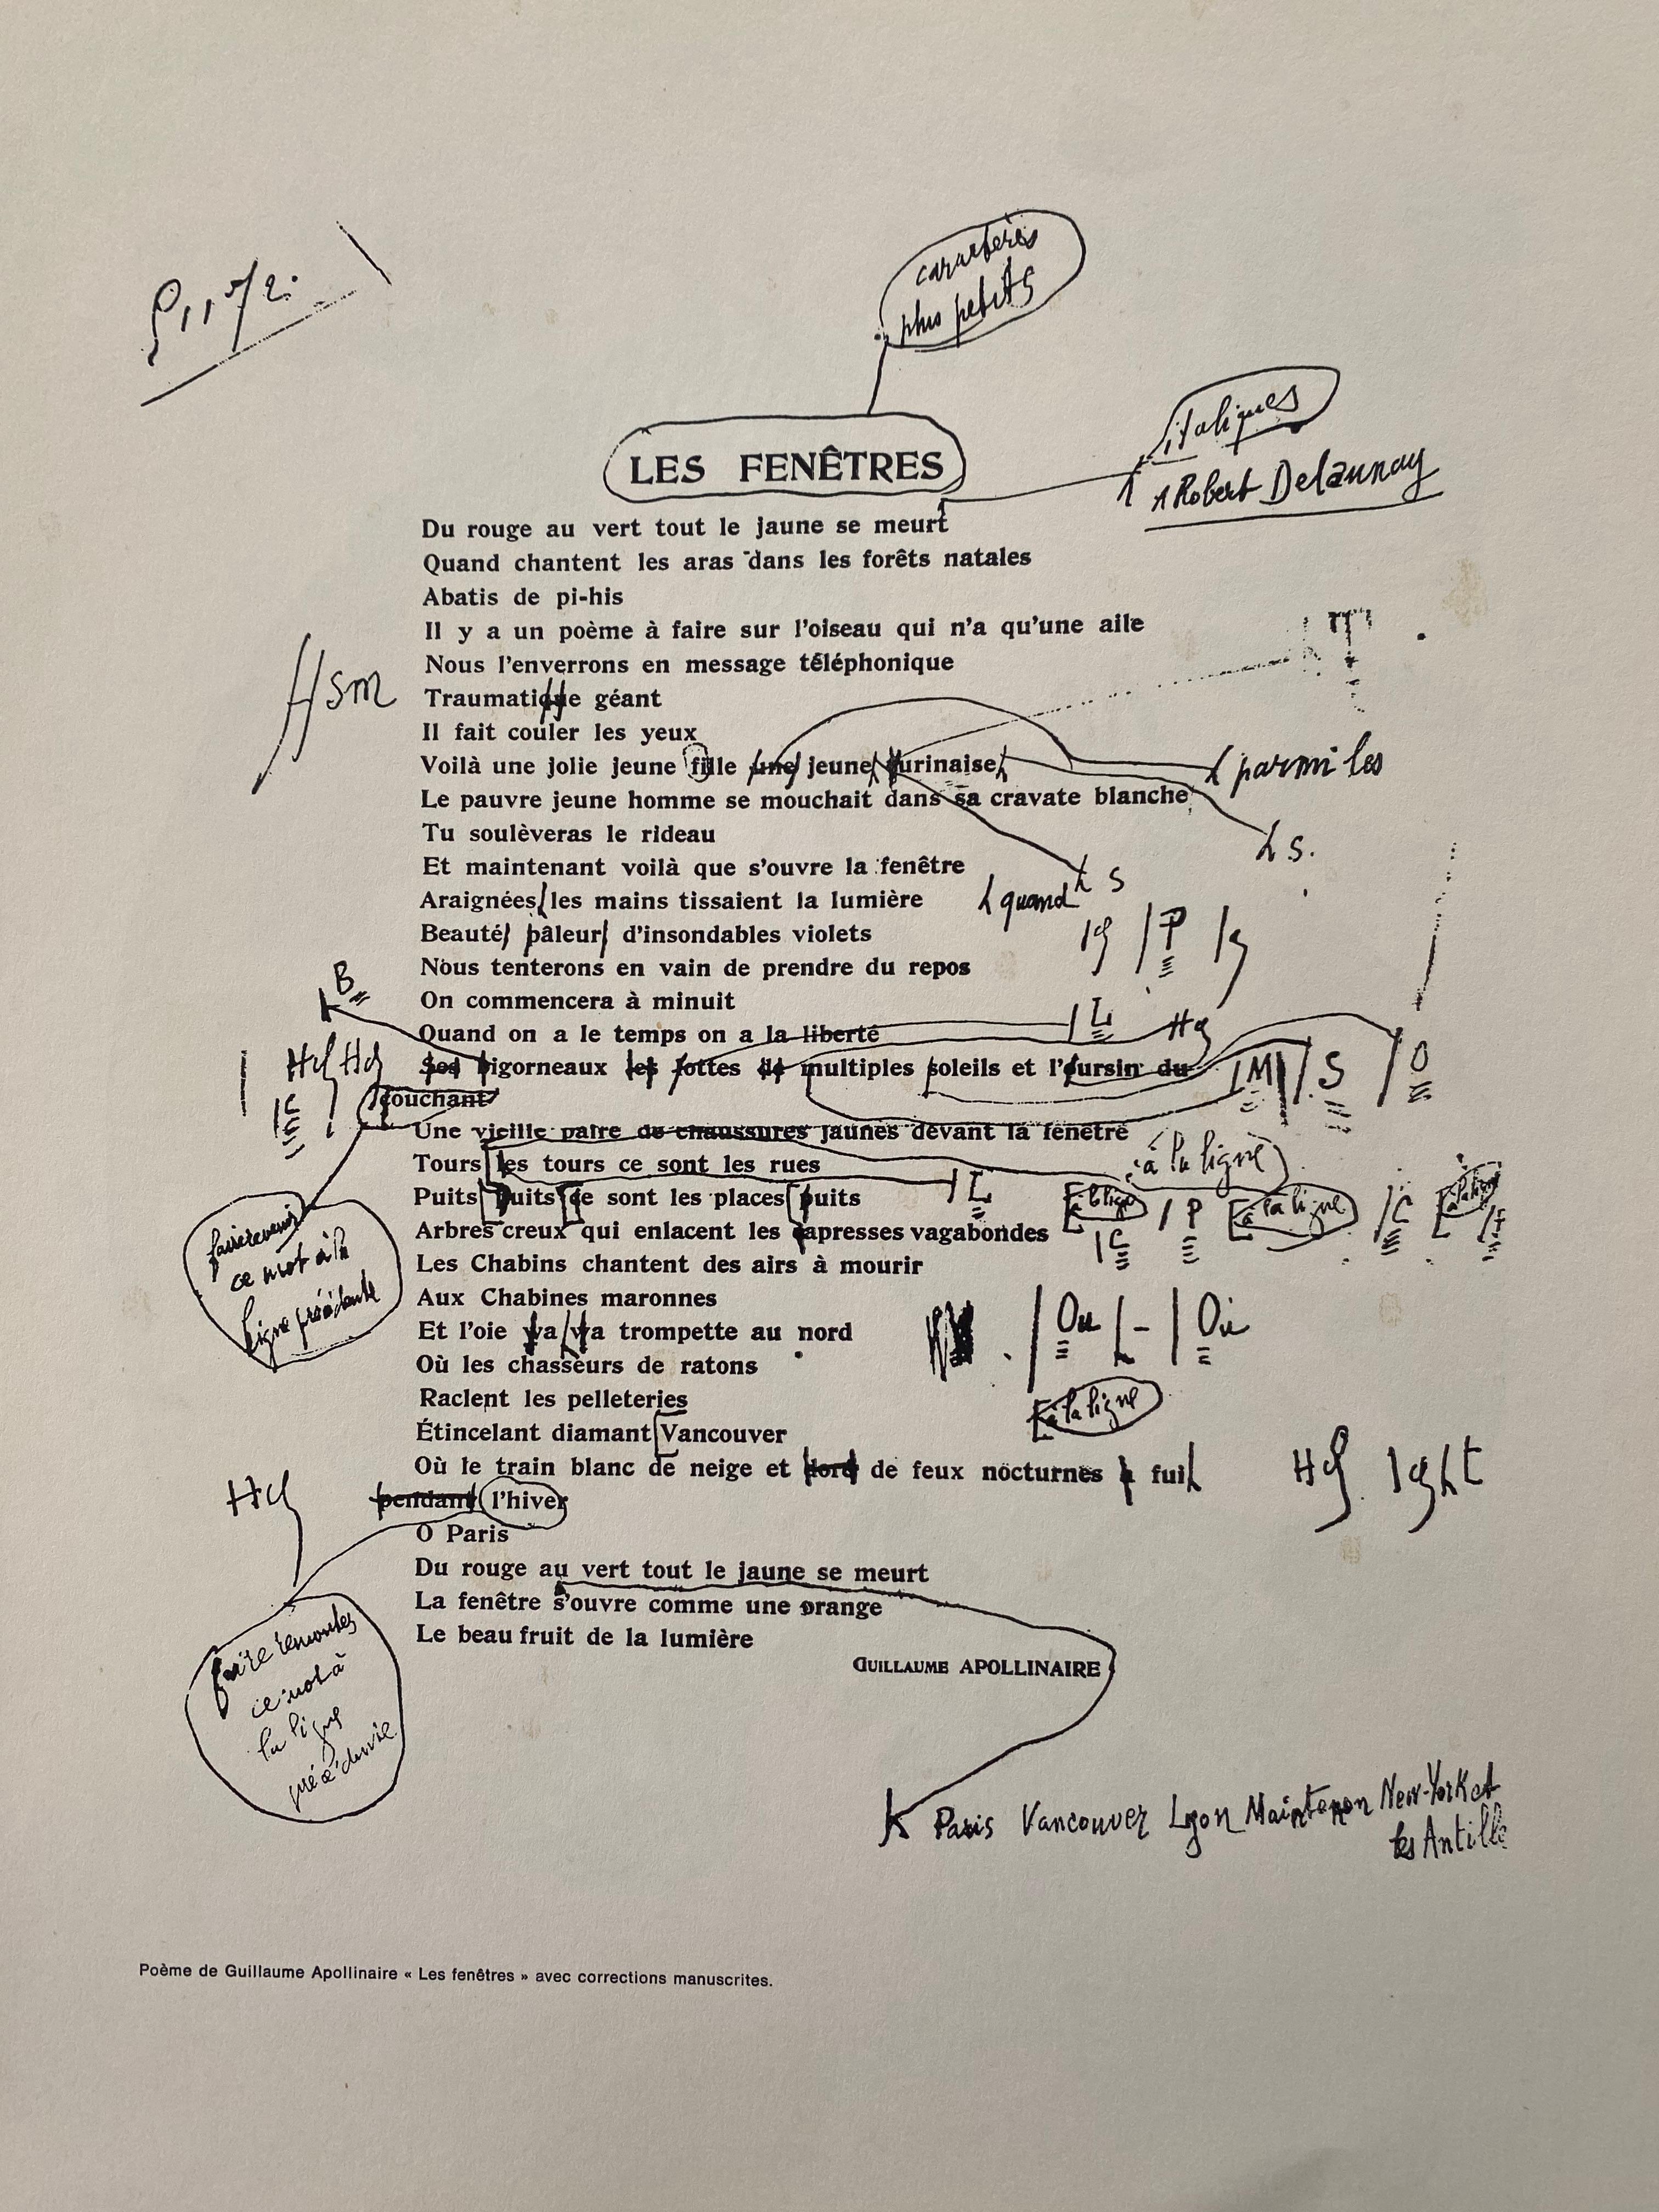 caractères
plus petits
italiques
Robert Delaunay
LES FENÊTRES
Du rouge au vert tout le jaune se meurt
Quand chantent les aras dans les forêts natales
Abatis de pi-his
Il y a un poème à faire sur l'oiseau qui n'a qu'une aile
Nous l'enverrons en message téléphonique
sm
Traumatique géant
Il fait couler les yeux
Voilà une jolie jeune fille une jeune turinaise
parmi les
Le pauvre jeune homme se mouchait dans sa cravate blanche
s.
Tu soulèveras le rideau
Et maintenant voilà que s'ouvre la fenêtre
s
Araignées les mains tissaient la lumière
quand
Beauté pâleur d'insondables violets
P
Nous tenterons en vain de prendre du repos
B
On commencera à minuit
Quand on a le temps on a la liberté
L
Ses bigorneaux les lottes de multiples soleils et l'oursin du
M S O
C
couchant
Une vieille paire de chaussures jaunes devant la fenêtre
à la ligne
Tours les tours ce sont les rues
L
Puits puits ce sont les places puits
à la ligne P à la ligne C à la ligne
Arbres creux qui enlacent les capresses vagabondes
C
faire revenir
ce mot à la
ligne précédente
Les Chabins chantent des airs à mourir
Aux Chabines maronnes
Et l'oie wa wa trompette au nord
Ou - Oi
Où les chasseurs de ratons
Raclent les pelleteries
à la ligne
Étincelant diamant Vancouver
Où le train blanc de neige et doré de feux nocturnes a fui
t
pendant l'hiver
O Paris
Du rouge au vert tout le jaune se meurt
La fenêtre s'ouvre comme une orange
Le beau fruit de la lumière
GUILLAUME APOLLINAIRE
faire remonter
ce mot à
la ligne
précédente
Paris Vancouver Lyon Maintenon New-York et
les Antilles
Poème de Guillaume Apollinaire « Les fenêtres » avec corrections manuscrites.